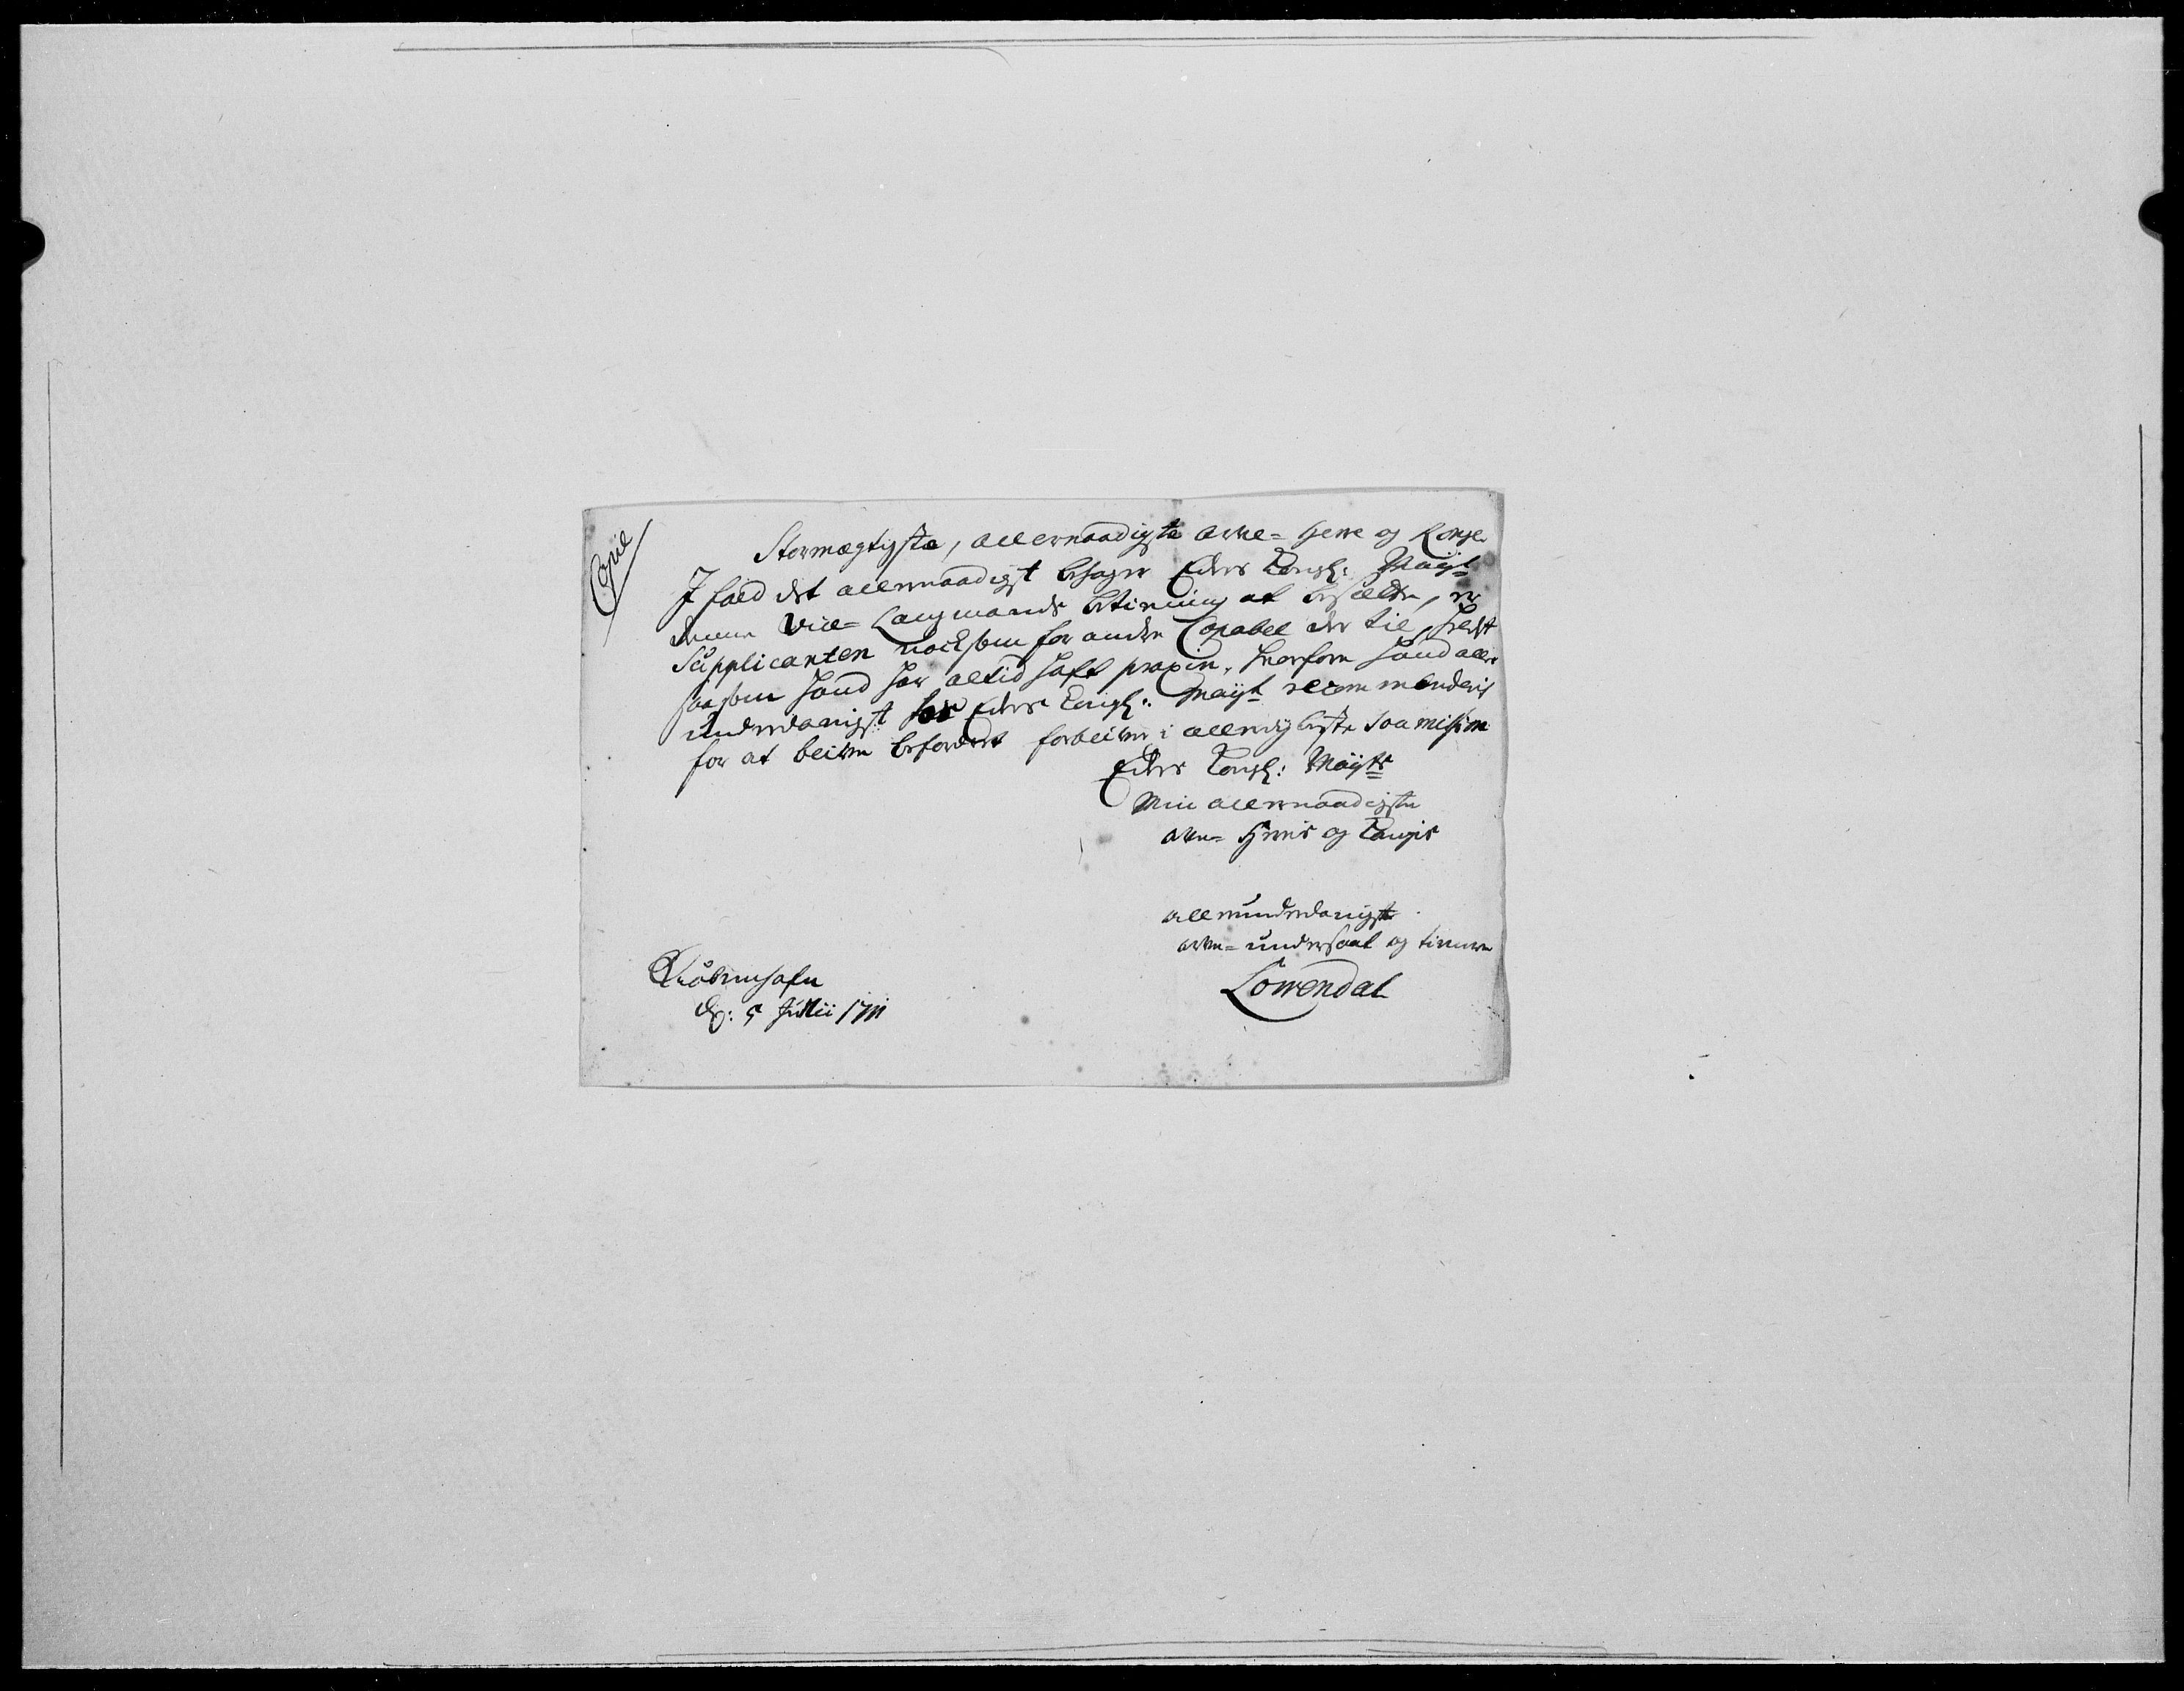 Copie
Stormægtigste, allernaadigste Arfve-Herre og Konge
I fald det allernaadigst behager Eders Kongl: Mayt
denne Vice-Laugmands betiening at besætte, er
Supplicanten nock som for anden Capabel der til, helst
saasom hand har altid haft praxin, hvorfore hand aller
underdanigst for Eders Kongl: Mayt recommenderis
for at blive befordret forblifver i allerdybeste Soumission
Eders Kongl: Mayts
Min allernaadigste
Arfve-Herris og Kongis
allerunderdanigste
arfve-undersaat og tienere
Kiöbenhafn
d: 5 Julii 1711
Löwendal